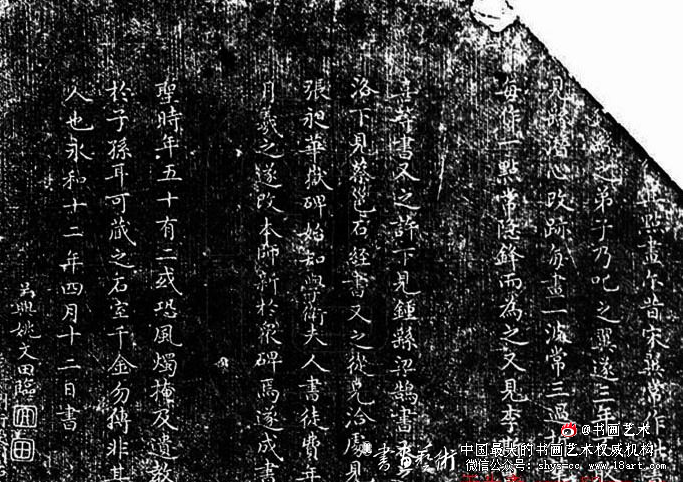 點畫尔昔宋翼常作此
之弟子乃叱之翼遂三年
見繇潛心改跡每畫一波常三過
每作一點常隱鋒而為之又見李
喜等書又之許下見鍾繇梁鵠書
洛下見蔡邕石經書又之從兄洽處見
張昶華嶽碑始知學衛夫人書徒費年
月羲之遂改本師新於衆碑焉遂成書
聖時年五十有二或恐風燭掩及遺教
於子孫耳可藏之石室千金勿傳非其
人也永和十二年四月十二日書
吳興姚文田臨
@书画艺术
書畫藝術
中国最大的书画艺术权威机构
微信公众号：shysfcc www.18art.com